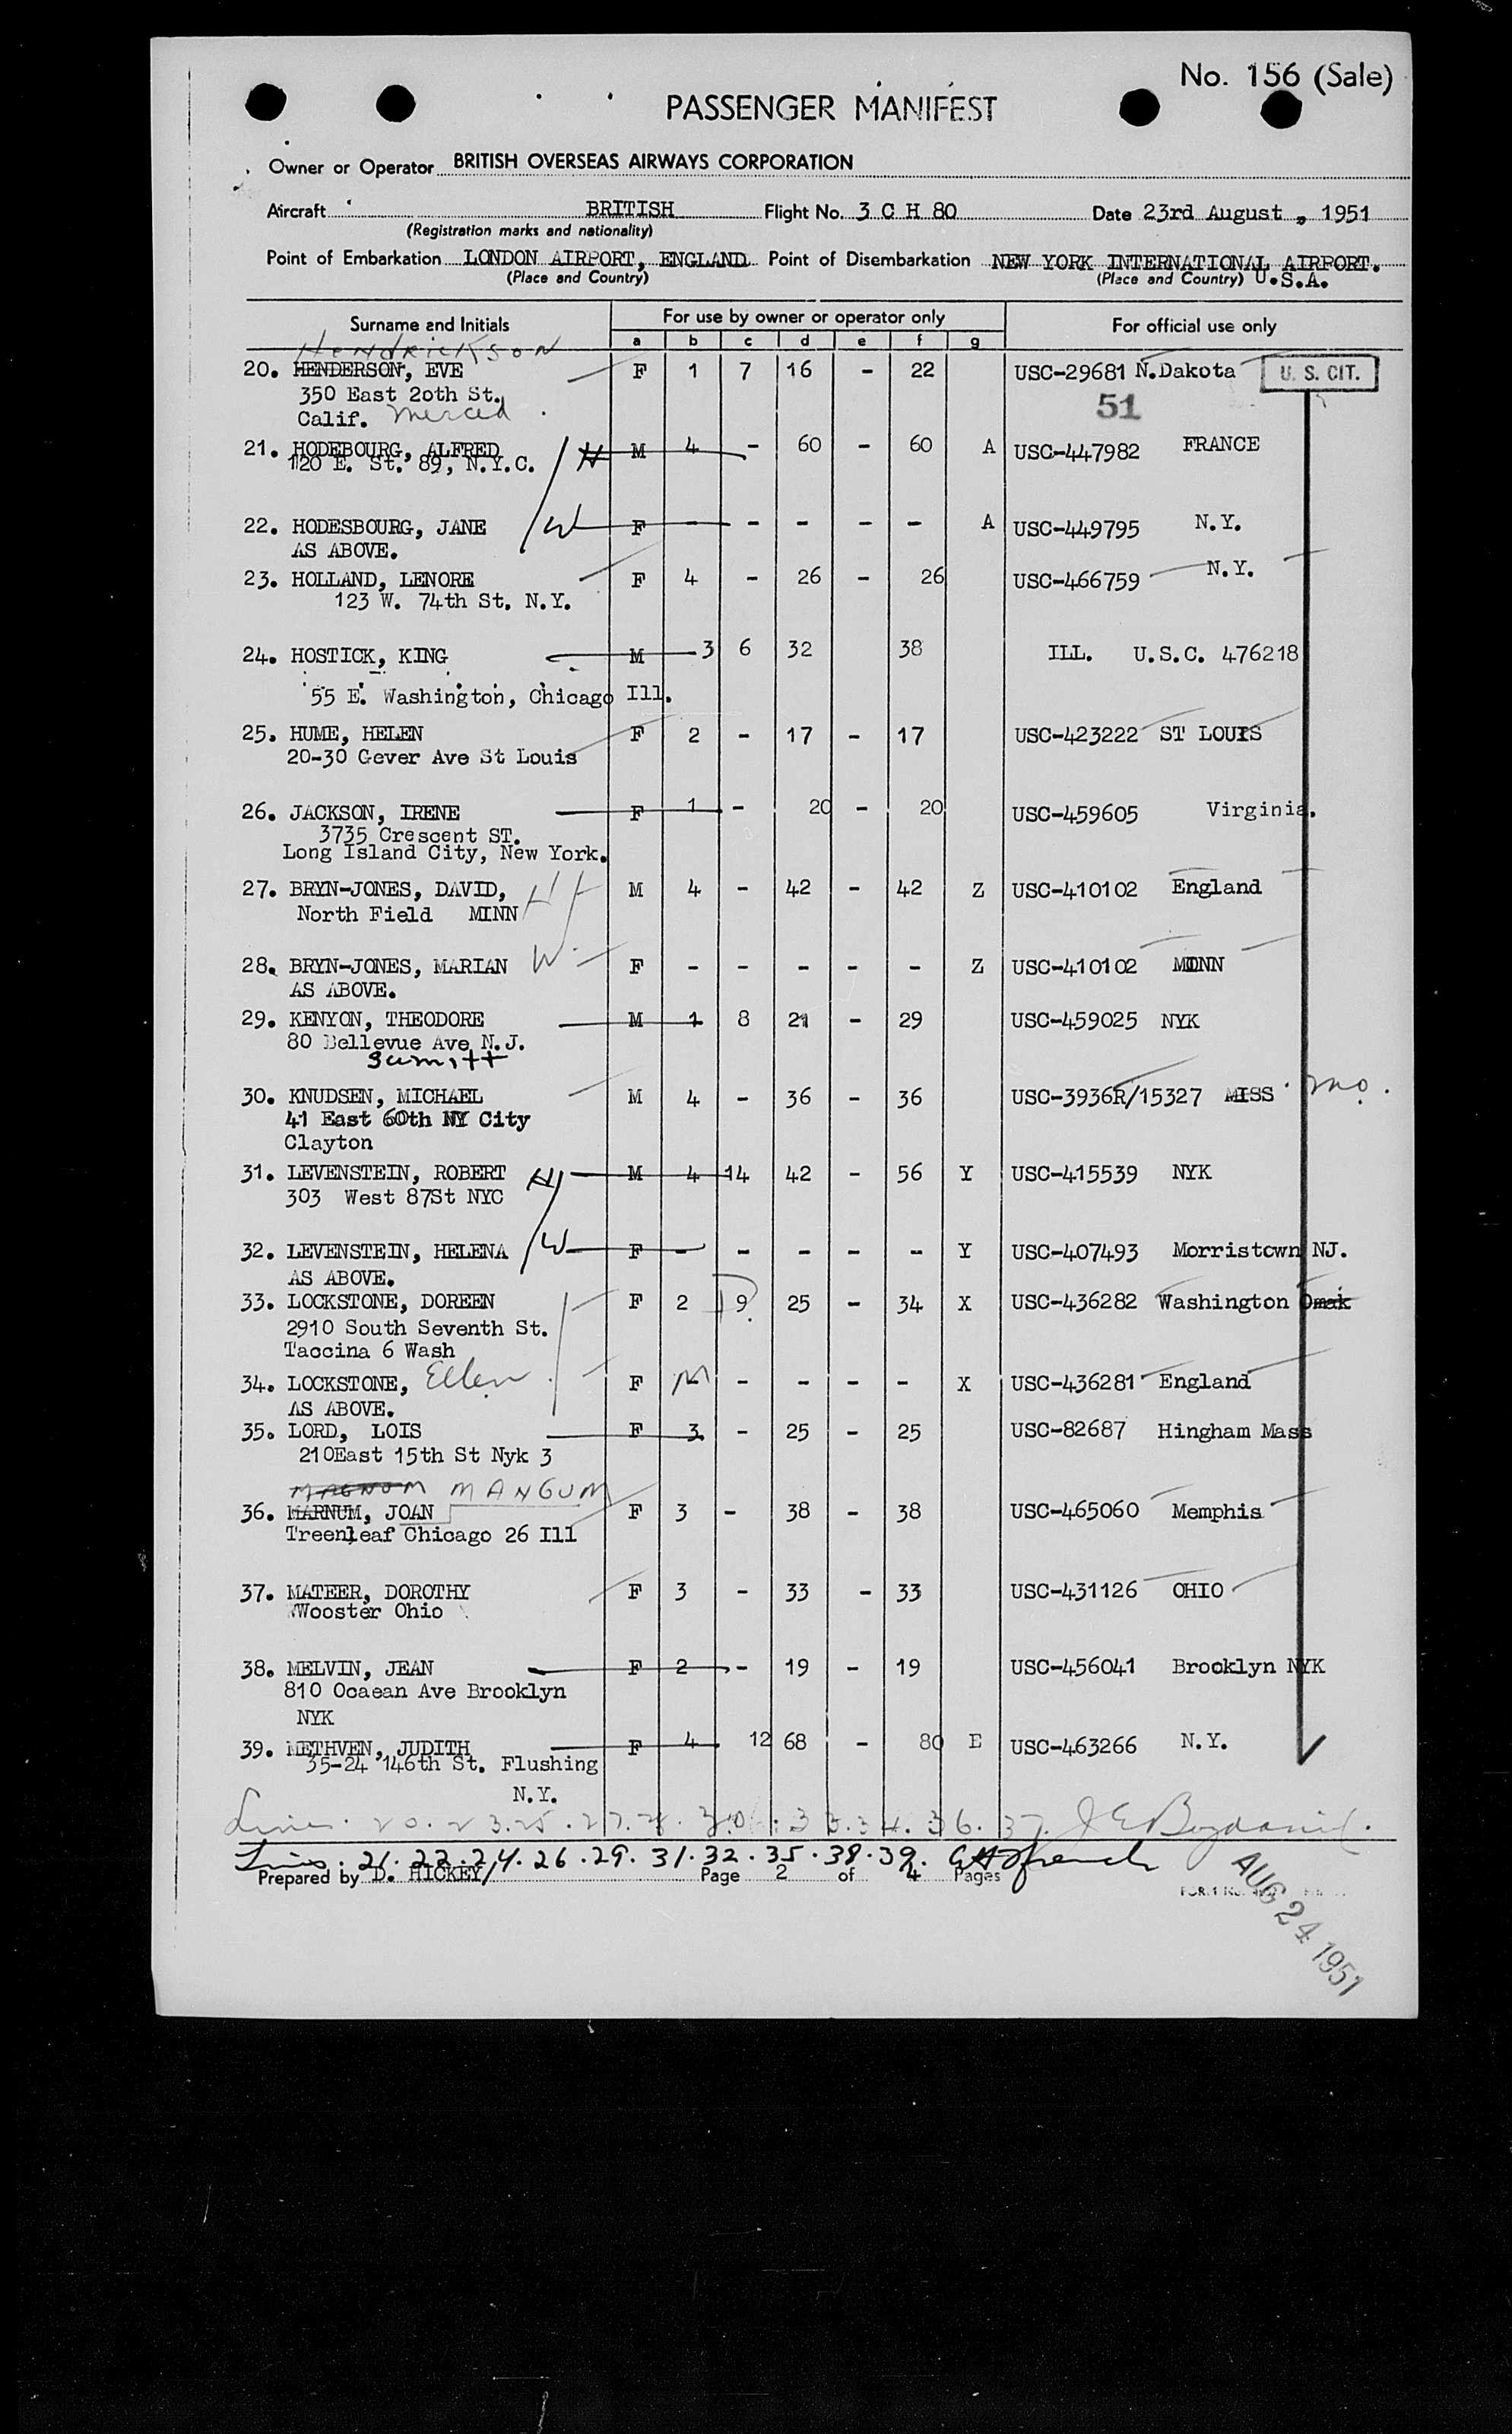 No. 156 (Sale)
PASSENGER MANIFEST
Owner or Operator BRITISH OVERSEAS AIRWAYS CORPORATION
Aircraft BRITISH Flight No. 3 C H 80 Date 23rd August, 1951
(Registration marks and nationality)
Point of Embarkation LONDON AIRPORT, ENGLAND Point of Disembarkation NEW YORK INTERNATIONAL AIRPORT.
(Place and Country) (Place and Country) U.S.A.
Surname and Initials For use by owner or operator only For official use only
a b c d e f g
Hendrickson
20. HENDERSON, EVE F 1 7 16 - 22 USC-29681 N.Dakota U. S. CIT.
350 East 20th St. 51
Calif. Merced
21. HODEBOURG, ALFRED H M 4 - 60 - 60 A USC-447982 FRANCE
120 E. St. 89, N.Y.C.
22. HODESBOURG, JANE W F - - - - - A USC-449795 N.Y.
AS ABOVE.
23. HOLLAND, LENORE F 4 - 26 - 26 USC-466759 N.Y.
123 W. 74th St. N.Y.
24. HOSTICK, KING M 3 6 32 38 ILL. U.S.C. 476218
55 E. Washington, Chicago Ill.
25. HUME, HELEN F 2 - 17 - 17 USC-423222 ST LOUIS
20-30 Gever Ave St Louis
26. JACKSON, IRENE F 1 - 20 - 20 USC-459605 Virginia.
3735 Crescent ST.
Long Island City, New York.
27. BRYN-JONES, DAVID, H M 4 - 42 - 42 Z USC-410102 England
North Field MINN
28. BRYN-JONES, MARIAN W F - - - - - Z USC-410102 MINN
AS ABOVE.
29. KENYON, THEODORE M 1 8 21 - 29 USC-459025 NYK
80 Bellevue Ave N.J.
Sumitt
30. KNUDSEN, MICHAEL M 4 - 36 - 36 USC-3936R/15327 MISS mo.
41 East 60th NY City
Clayton
31. LEVENSTEIN, ROBERT H M 4 14 42 - 56 Y USC-415539 NYK
303 West 87St NYC
32. LEVENSTEIN, HELENA W F - - - - - Y USC-407493 Morristown NJ.
AS ABOVE.
33. LOCKSTONE, DOREEN F 2 D 9 25 - 34 X USC-436282 Washington Omak
2910 South Seventh St.
Taccina 6 Wash
34. LOCKSTONE, Ellen F M - - - - X USC-436281 England
AS ABOVE.
35. LORD, LOIS F 3 - 25 - 25 USC-82687 Hingham Mass
210East 15th St Nyk 3
MAGNUM MANGUM
36. MARNUM, JOAN F 3 - 38 - 38 USC-465060 Memphis
Treenleaf Chicago 26 Ill
37. MATEER, DOROTHY F 3 - 33 - 33 USC-431126 OHIO
Wooster Ohio
38. MELVIN, JEAN F 2 - 19 - 19 USC-456041 Brooklyn NYK
810 Ocaean Ave Brooklyn
NYK
39. METHVEN, JUDITH F 4 12 68 - 80 E USC-463266 N.Y.
35-24 146th St. Flushing
N.Y.
Lines. 20. 23. 25. 27. 28. 30. 33. 34. 36. 37.
Lines. 21. 22. 24. 26. 29. 31. 32. 35. 38. 39.
Prepared by D. HICKEY/ Page 2 of 4 Pages
AUG 24 1951